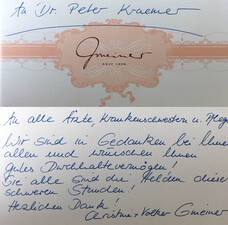 An Dr. Peter Kraemer
Gmeiner
An alle Ärzte, Krankenschwestern u. Pflege
Wir sind in Gedanken bei Ihnen
allen und wünschen Ihnen
gutes Durchhaltevermögen!
Sie alle sind die Helden dieser
schweren Stunden!
Herzlichen Dank!
Christine + Volker Gmeiner